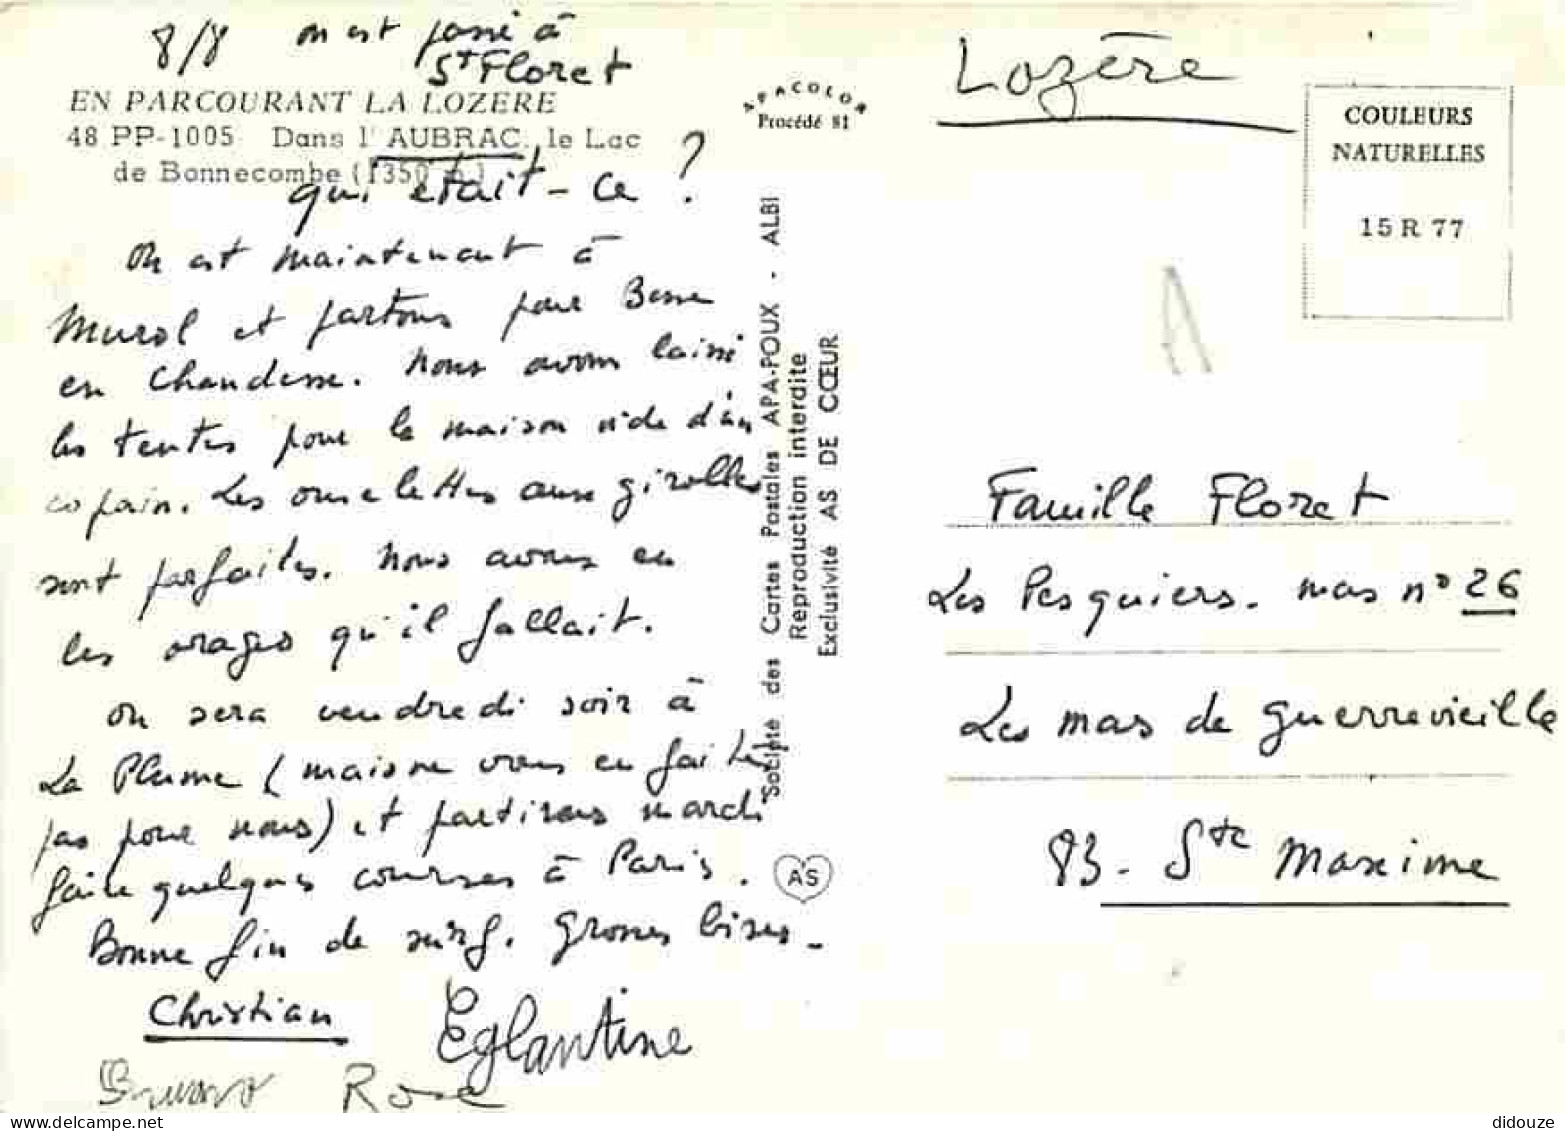 8/8 on est passé à
St Floret
EN PARCOURANT LA LOZERE
48 PP-1005 Dans l'AUBRAC, le Lac
de Bonnecombe (1350 m)
qui était-ce ?
On est maintenant à
Murol et partons pour Besse
en Chandesse. Nous avons laissé
les tentes pour la maison vide d'un
copain. Les omelettes aux girolles
sont parfaites. Nous avons eu
les orages qu'il fallait.
On sera vendredi soir à
La Plume (maison vous en faites
pas pour nous) et partirons mardi
faire quelques courses à Paris.
Bonne fin de surf. Grosses bises -
Christian
Eglantine
Bruno Rose
APACOLOR
Procédé 81
Société des Cartes Postales APA-POUX - ALBI
Reproduction interdite
Exclusivité AS DE CŒUR
AS
Lozère
COULEURS
NATURELLES
15 R 77
Famille Floret
Les Pesquiers. mas n° 26
Les mas de guerrevieille
83 - Ste Maxime
didouze